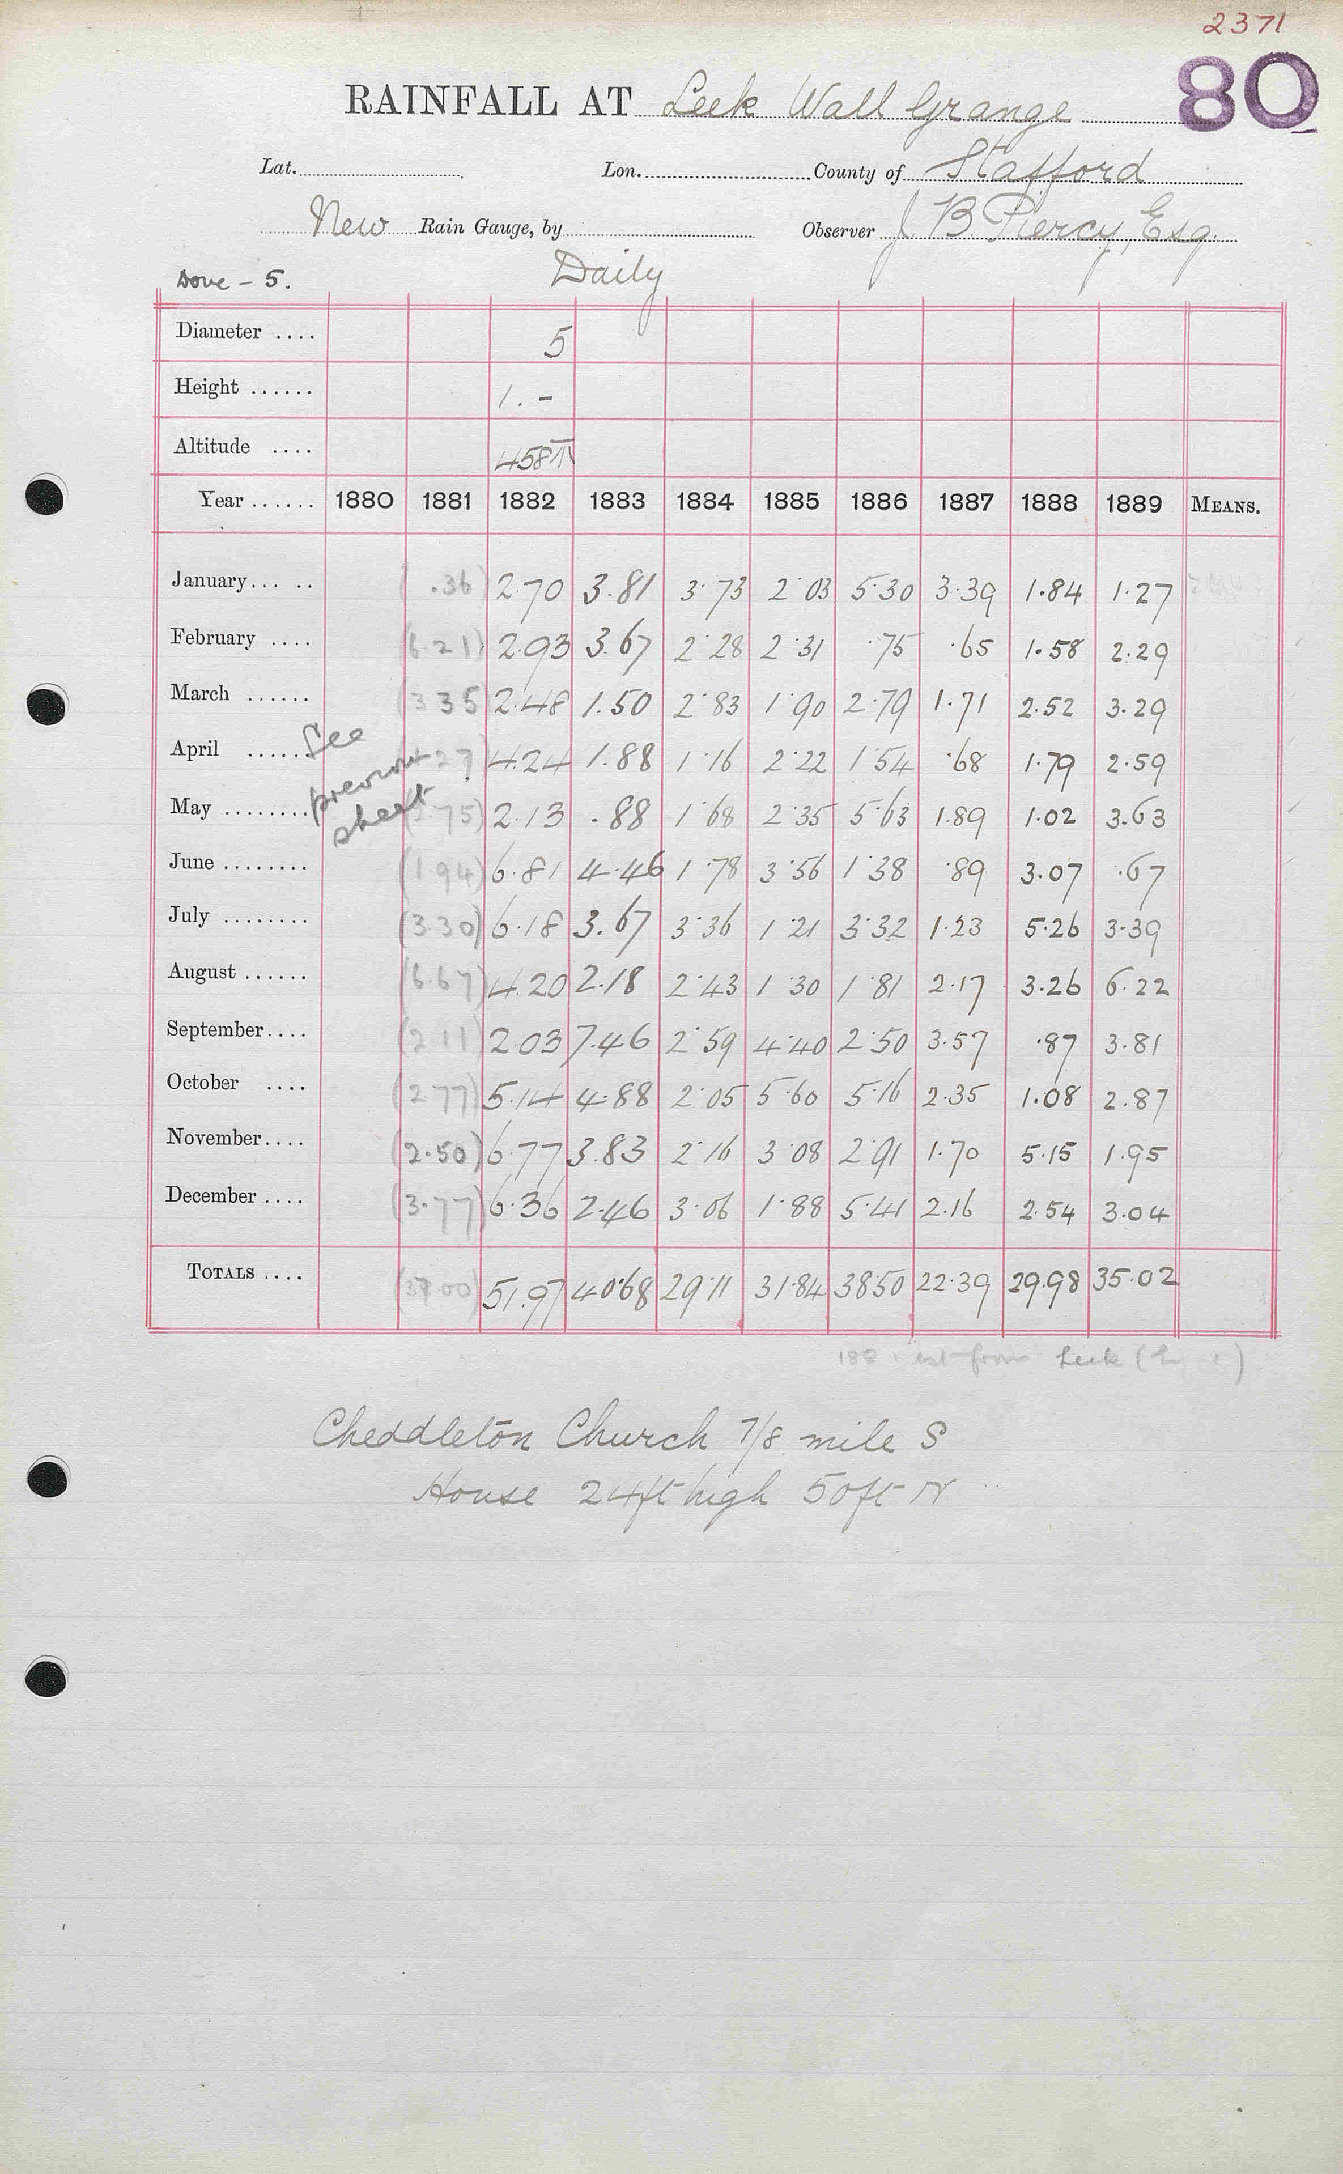 2371
80
RAINFALL AT Leek Wall Grange
Lat. Lon. County of Stafford
New Rain Gauge, by Observer J. B Piercy, Esq.
Dove - 5. Daily
Diameter .... 5
Height ...... 1. -
Altitude .... 458
Year ...... 1880 1881 1882 1883 1884 1885 1886 1887 1888 1889 MEANS.
January ... .. .36) 2.70 3.81 3.73 2.03 5.30 3.39 1.84 1.27
February .... 2.93 3.67 2.28 2.31 .75 .65 1.58 2.29
March ...... (3 35 2.48 1.50 2.83 1.90 2.79 1.71 2.52 3.29
April ...... 4.24 1.88 1.16 2.22 1.54 .68 1.79 2.59
See previous sheet
May ........ 2.13 .88 1.68 2.35 5.63 1.89 1.02 3.63
June ........ (1 94) 6.81 4.46 1.78 3.56 1.38 .89 3.07 .67
July ........ (3.30) 6.18 3.67 3.36 1.21 3.32 1.23 5.26 3.39
August ...... (6.67) 4.20 2.18 2.43 1.30 1.81 2.17 3.26 6.22
September .... (2 11) 2.03 7.46 2.59 4.40 2.50 3.57 .87 3.81
October .... (2 77) 5.14 4.88 2.05 5.60 5.16 2.35 1.08 2.87
November .... (2.50) 6.77 3.83 2.16 3.08 2.91 1.70 5.15 1.95
December .... (3.77) 6.36 2.46 3.06 1.88 5.41 2.16 2.54 3.04
TOTALS .... 51.97 40.68 29.11 31.84 38.50 22.39 29.98 35.02
est from Leek
Cheddleton Church 7/8 mile S
House 24ft high 50ft N